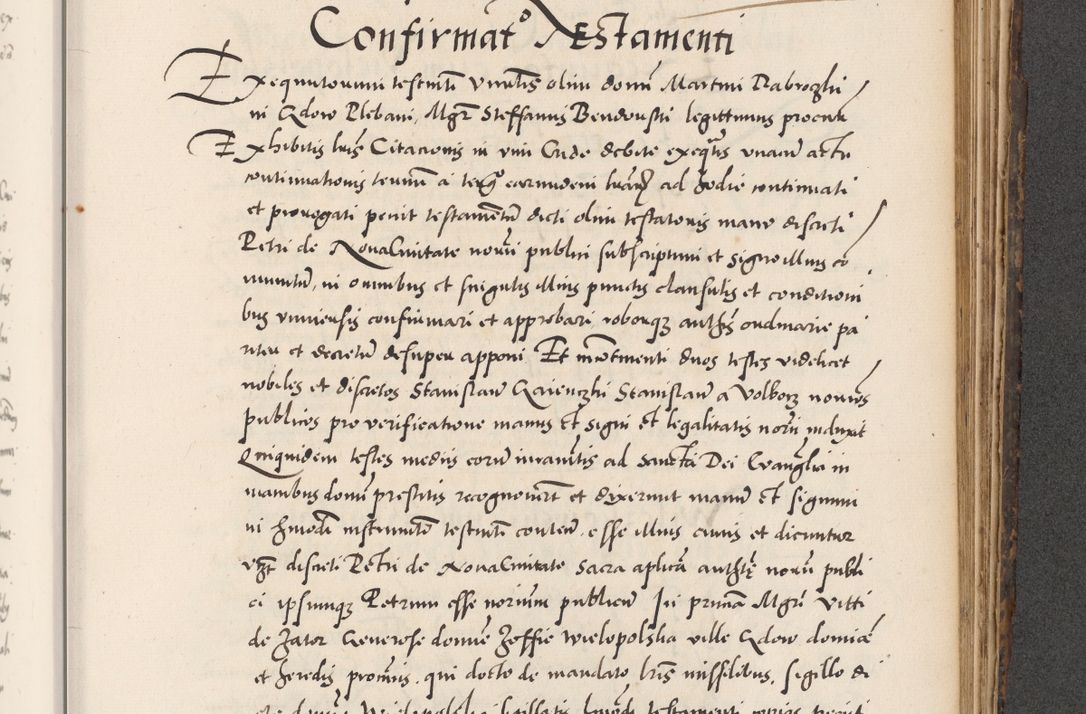 Confirmat° Testamenti
Exequutorum testmti Vnutis olim domi Martini Dabroghi
in Gdow Plebani, Mgr Steffanus Bendonski legittimus procur
Exhibitis lris Citacionis in vim Cride debite exeqtis vnacu actu
continuationis termini a terg° earundem lrarum ad hodie continuati
et prorogati petiit testamentu dicti olim testatoris manu discreti
Petri de NouaCiuitate notrii publici subscriptum et signo illius co
munitu, in omnibus et singulis illius punctis clausulis et conditioni
bus vniuersis confirmari et approbari, roborque authtis ordinarie pa
riter et decretu desuper apponi Et incontinenti duos testes videlicet
nobiles et discretos Stanislau Stanislau a Volborz notrios
publicos pro verificatione manus et signi et legalitatis notrii induxit
Quiquidem testes mediis eoru iuramtis ad Sancta Dei Euanglia in
manibus domi prestitis recognouert et dixerunt manu et signum
in hmodi instrumto testmti conten. esse illius cuius et dicuntur
vzt discreti Petri de NouaCiuitate Sacra aplica authte notrii publi
ci ipsumqz Petrum esse notrium publicu In prntia Mgri Vitti
de Zator Generose domine Zoffie Wielopolska ville Gdow domice
et heredis procuris. qui docto de mandato lris missilibus, sigillo di